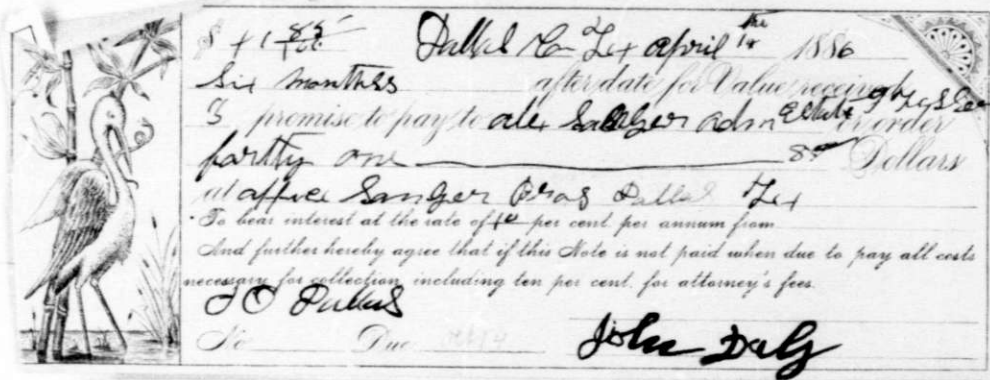 $ 41 85/100 Dallas Co Tex april the 14 1886
Six monthss after date for Value received
I promise to pay to alex Sanger adm Estate of or order
fortty one 85 Dollars
at office Sanger Bros Dallas Tex
To bear interest at the rate of 10 per cent. per annum from
And further hereby agree that if this Note is not paid when due to pay all costs
necessary for collection, including ten per cent. for attorney's fees.
Dallas
No Due
John Daly